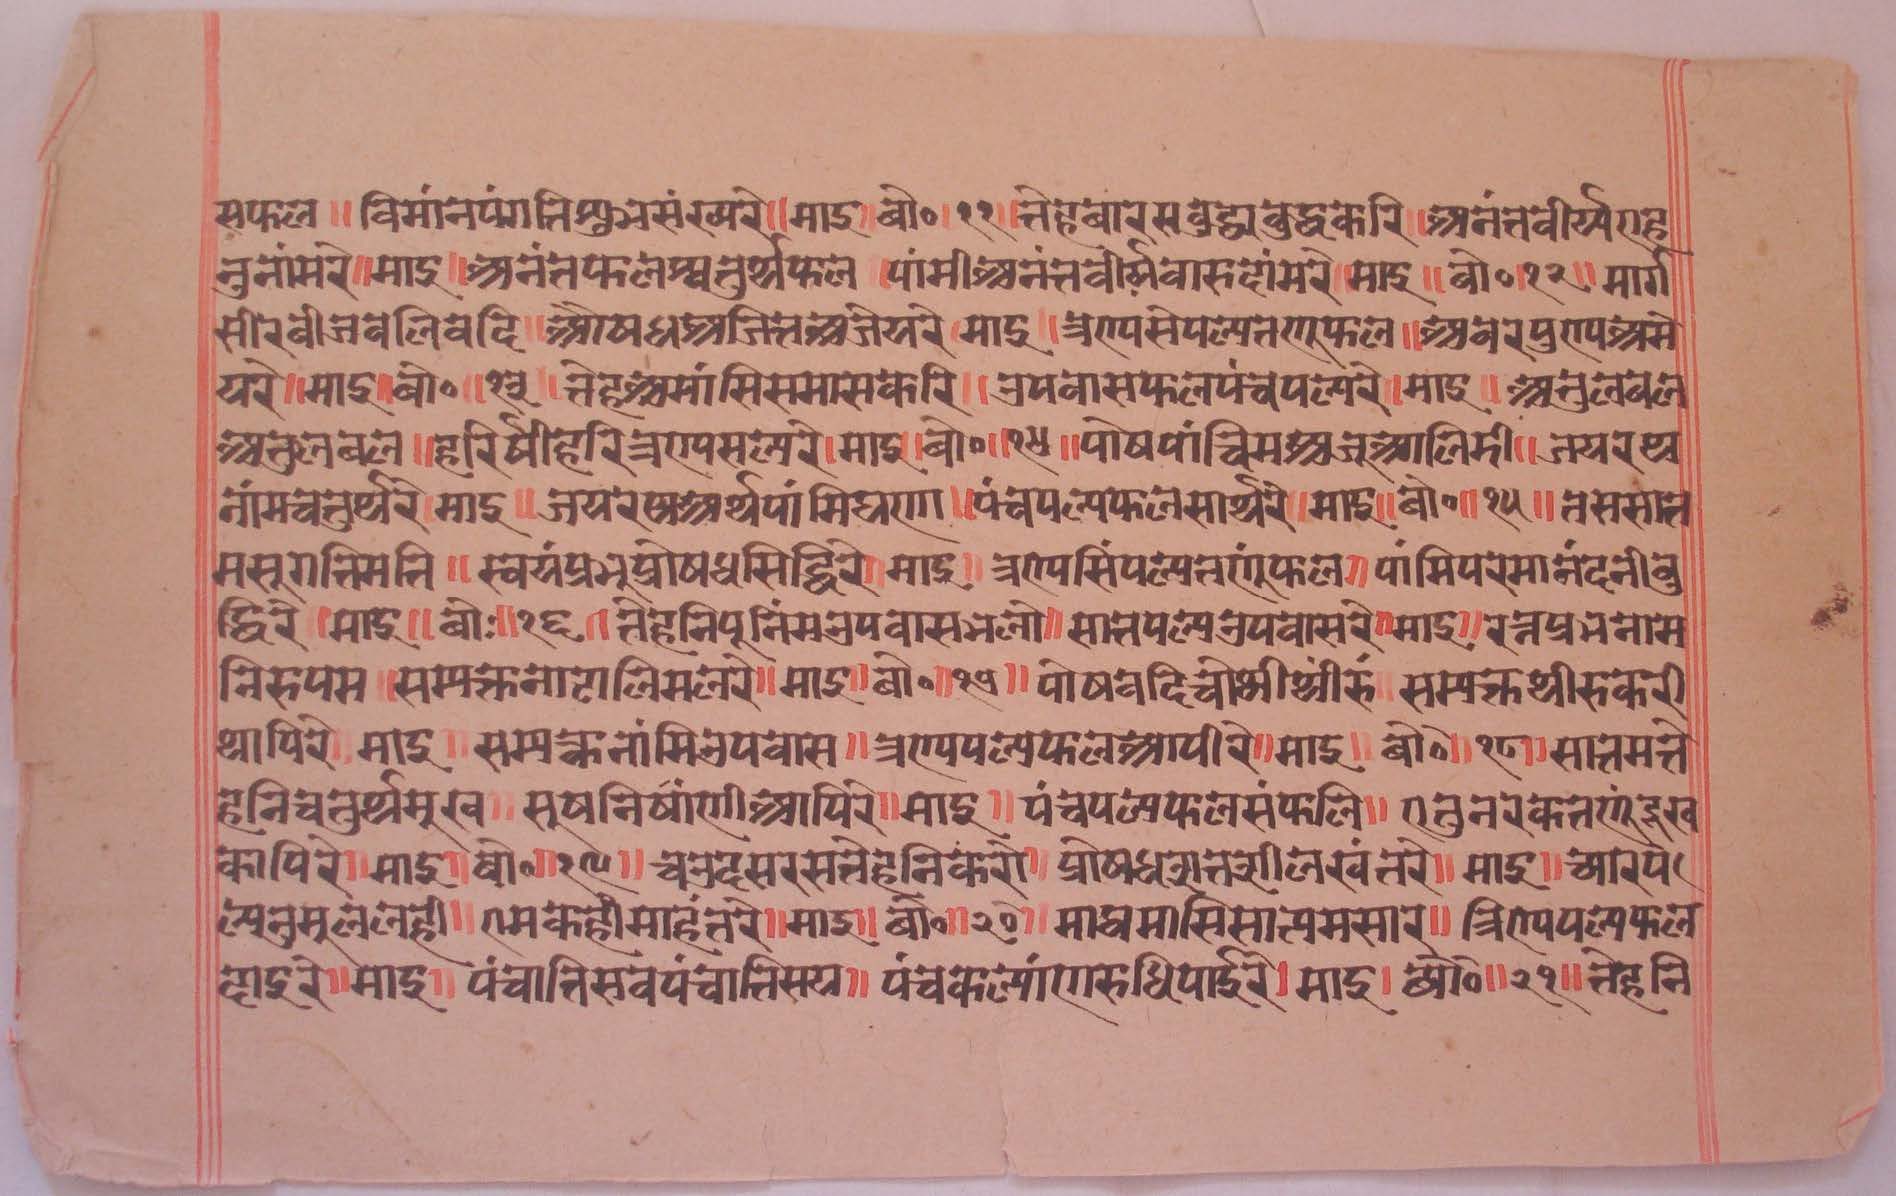 सफल ॥ विमांनपंगतिस्फुनसंख्यरे ॥ माइ ॥ बो० ॥ १२ ॥ तेहबारसबुद्धाबुद्धकेरि ॥ अनंतवीर्य्यगह
नुनांमरे ॥ माइ ॥ अनंतफलम्चतुर्थफल ॥ पांमीअनंतवीर्यवासहांमरे ॥ माइ ॥ बो० ॥ १२ ॥ मार्ग
सीरवीजवलिवदि ॥ औषधअजितअजेयरे ॥ माइ ॥ त्रण्यसेपल्यतणूफल ॥ अवरपुण्यअमे
यरे ॥ माइ ॥ बो० ॥ १३ ॥ तेहअमांसिसमासकेरि ॥ उपवासफलपंचपल्यरे ॥ माइ ॥ अतुलबल
अतुलबल ॥ हरिर्षीहरित्रण्यसल्यरे ॥ माइ ॥ बो० ॥ १४ ॥ पोषपांचिमअजूआलिमी ॥ जयरथ
नांमचतुर्थरे ॥ माइ ॥ जयरथअर्थपांमिघणा ॥ पंचपल्यफलसार्थरे ॥ माइ ॥ बो० ॥ १५ ॥ तससात
मसुगतिमति ॥ स्वयंप्रभुप्रोषधसिद्धिरे ॥ माइ ॥ त्रण्यसिंपल्यतणूंफल ॥ पांमिपरमानंदनीबु
द्धिरे ॥ माइ ॥ बो० ॥ १६ ॥ तेहनिपुनिंमउपवासभलो ॥ सातपल्यउपवासरे ॥ माइ ॥ रत्नप्रभनाम
निरुपम ॥ सम्यक्तनाटालिमलरे ॥ माइ ॥ बो० ॥ १७ ॥ पोषवदिचोथीथीरुं ॥ सम्यक्तथीरुकरी
थापिरे ॥ माइ ॥ सम्यक्तनांमिउपवास ॥ त्रण्यपल्यफलआपीरे ॥ माइ ॥ बो० ॥ १८ ॥ सातमते
हेनिचतुर्थमुख ॥ सुषनिर्षांणीआपिरे ॥ माइ ॥ पंचपल्यफलसंफलि ॥ गतुनरकतणूंदुख
कापिरे ॥ माइ ॥ बो० ॥ १९ ॥ चउदसरसतेहनिकरो ॥ प्रोषधव्रातशीलखंतरे ॥ माइ ॥ च्यारप
ल्यनुमुललही ॥ गमकहीमाहंतरे ॥ माइ ॥ बो० ॥ २० ॥ माघमासिसात्यमसार ॥ त्रिण्यपल्यफल
दाइरे ॥ माइ ॥ पंचातिसवपंचातिसय ॥ पंचकल्यांणरुधिपाईरे ॥ माइ ॥ बो० ॥ २१ ॥ तेहनि